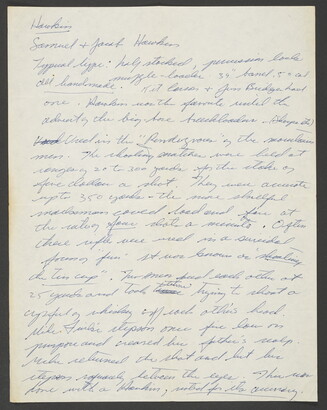 Hawkins
Samuel & Jacob Hawkins
Typical type: half stocked, percussion lock
muzzle-loader 39" barrel .50 cal
all handmade. Kit Carson & Jim Bridger had
one. Hawkins was the favorite until the
advent of the big-bore breechloaders.
Used in the "Rendezvous" of the mountain
men. The shooting matches were held at
ranges of 20 to 200 yards for the stake of
five dollars a shot. They were accurate
up to 350 yards - the more skillful
marksmen could load and fire at
the rate of four shots a minute. Often
these rifles were used in a suicidal
form of "fun" it was known as shooting
the tin cup". Two men faced each other at
25 yards and took trying to shoot a
cupful of whiskey off each other's head.
Mike Fink's stepson once fire low on
purpose and creased his father's scalp
Mike returned the shot and hit his
stepson squarely between the eyes. This was
done with a Hawkins, noted for its accuracy.